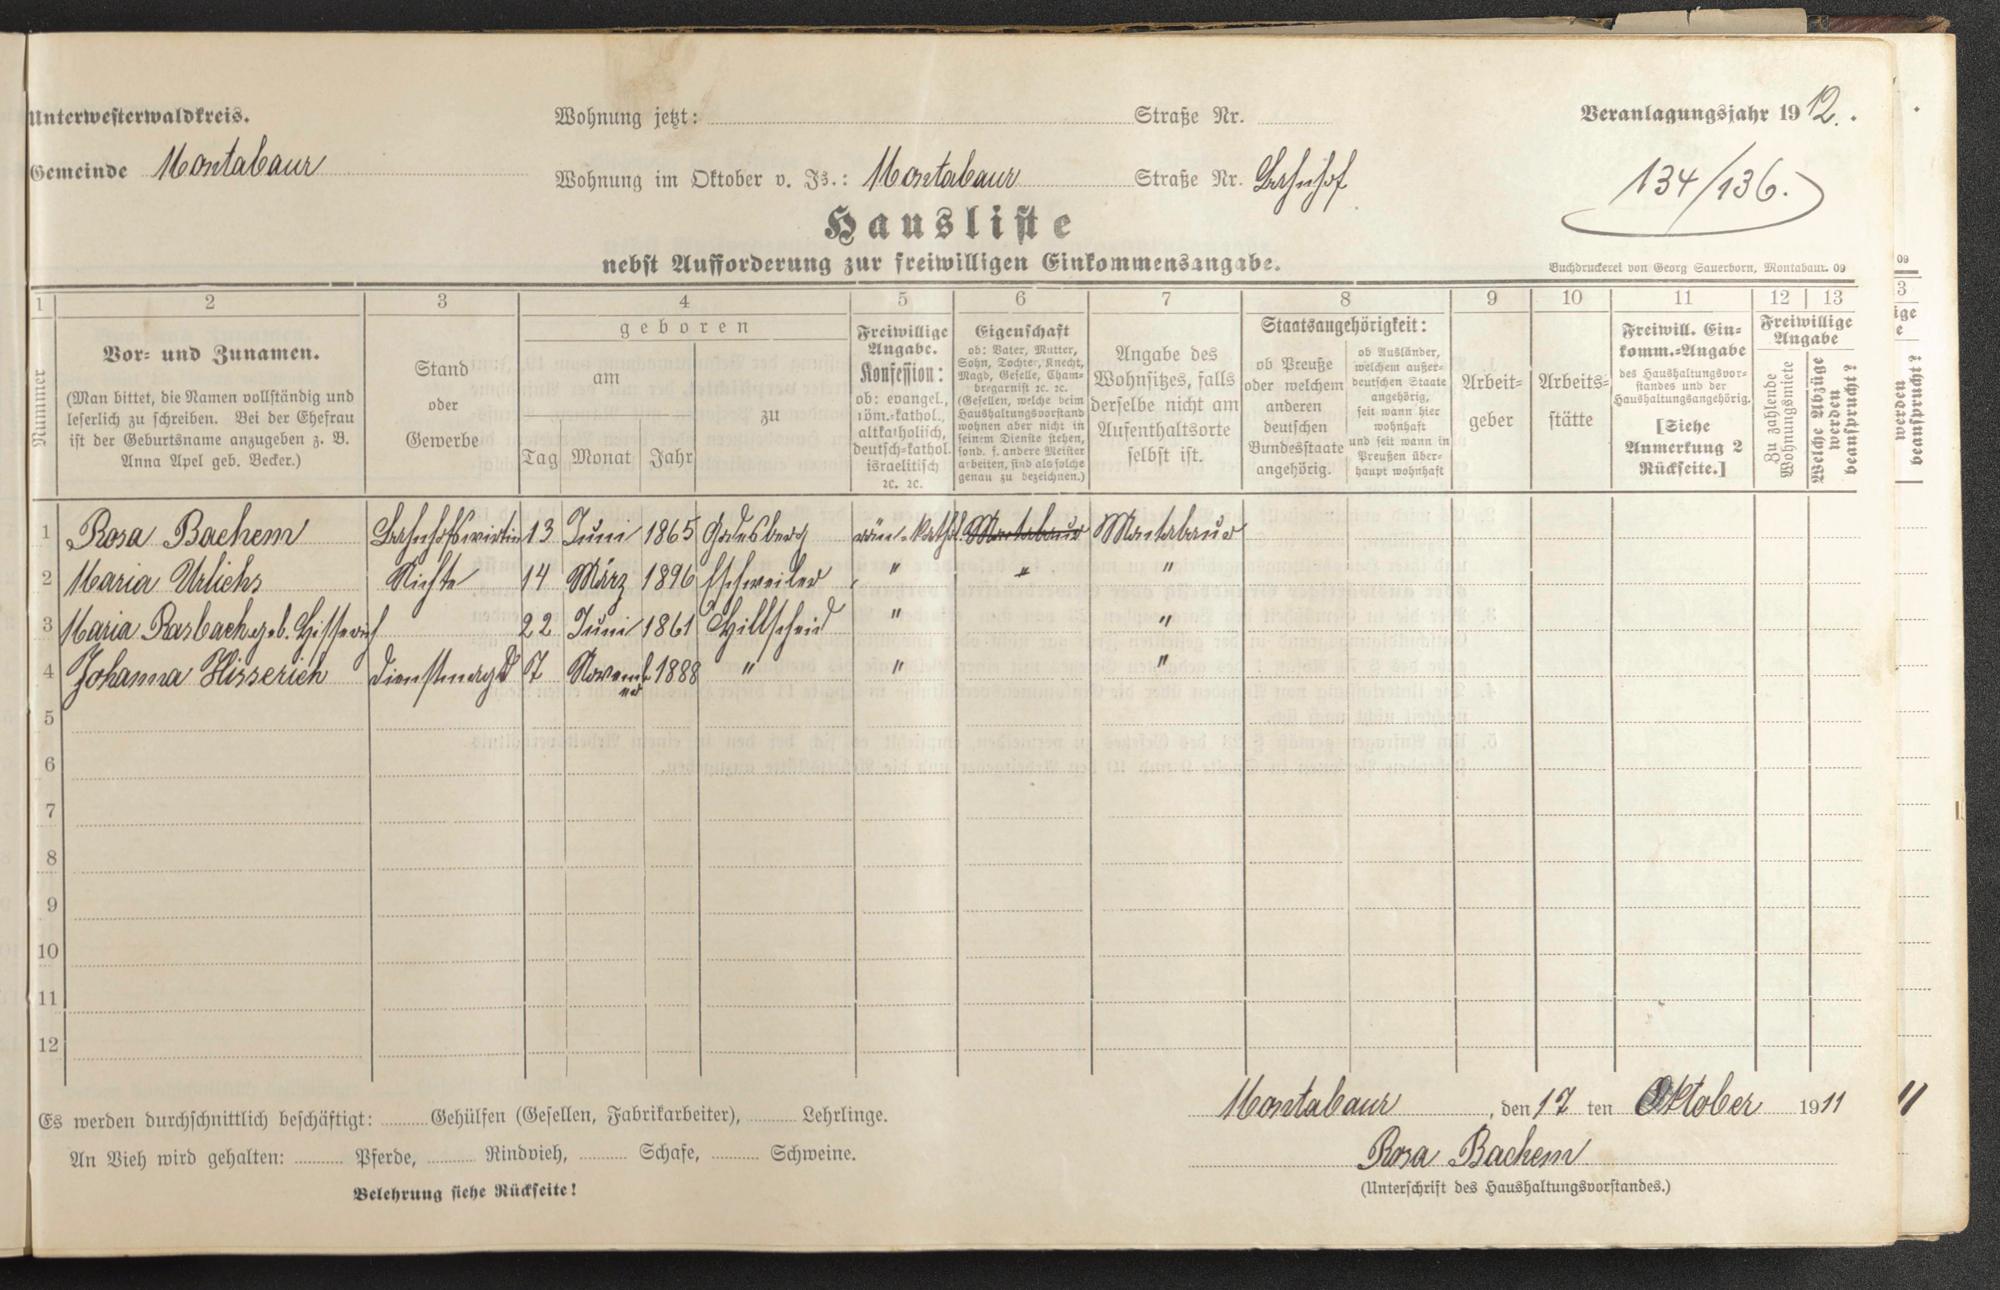 Unterwesterwaldkreis.
Wohnung jetzt: Straße Nr.
Veranlagungsjahr 1912.
Gemeinde Montabaur
Wohnung im Oktober v. Js.: Montabaur Straße Nr. Bahnhof
134/136.
Hausliste
nebst Aufforderung zur freiwilligen Einkommensangabe.
Buchdruckerei von Georg Sauerborn, Montabaur. 09
1 2 3 4 5 6 7 8 9 10 11 12 13
Nummer
Vor- und Zunamen.
(Man bittet, die Namen vollständig und
leserlich zu schreiben. Bei der Ehefrau
ist der Geburtsname anzugeben z. B.
Anna Apel geb. Becker.)
Stand
oder
Gewerbe
geboren
am
zu
Tag Monat Jahr
Freiwillige
Angabe.
Konfession:
ob: evangel.,
röm.-kathol.,
altkatholisch,
deutsch-kathol.
israelitisch
ꝛc. ꝛc.
Eigenschaft
ob: Vater, Mutter,
Sohn, Tochter, Knecht,
Magd, Geselle, Cham-
bregarnist ꝛc. ꝛc.
(Gesellen, welche beim
Haushaltungsvorstand
wohnen aber nicht in
seinem Dienste stehen,
sond. f. andere Meister
arbeiten, sind als solche
genau zu bezeichnen.)
Angabe des
Wohnsitzes, falls
derselbe nicht am
Aufenthaltsorte
selbst ist.
Staatsangehörigkeit:
ob Preuße
oder welchem
anderen
deutschen
Bundesstaate
angehörig.
ob Ausländer,
welchem außer-
deutschen Staate
angehörig,
seit wann hier
wohnhaft
und seit wann in
Preußen über-
haupt wohnhaft
Arbeit-
geber
Arbeits-
stätte
Freiwill. Ein-
komm.-Angabe
des Haushaltungsvor-
standes und der
Haushaltungsangehörig.
[Siehe
Anmerkung 2
Rückseite.]
Freiwillige
Angabe
Zu zahlende
Wohnungsmiete
Welche Abzüge
werden
beansprucht?
1 Rosa Bachem Bahnhofswirtin 13 Juni 1865 Godesberg röm.-kathol. Montabaur Montabaur
2 Maria Urlichs Nichte 14 März 1896 Eschweiler " " "
3 Maria Rasbach geb. Hisserich 22 Juni 1861 Hillscheid " "
4 Johanna Hisserich Dienstmagd 7 November 1888 " " "
5
6
7
8
9
10
11
12
Es werden durchschnittlich beschäftigt: Gehülfen (Gesellen, Fabrikarbeiter), Lehrlinge.
An Vieh wird gehalten: Pferde, Rindvieh, Schafe, Schweine.
Belehrung siehe Rückseite!
Montabaur, den 17 ten Oktober 1911
Rosa Bachem
(Unterschrift des Haushaltungsvorstandes.)